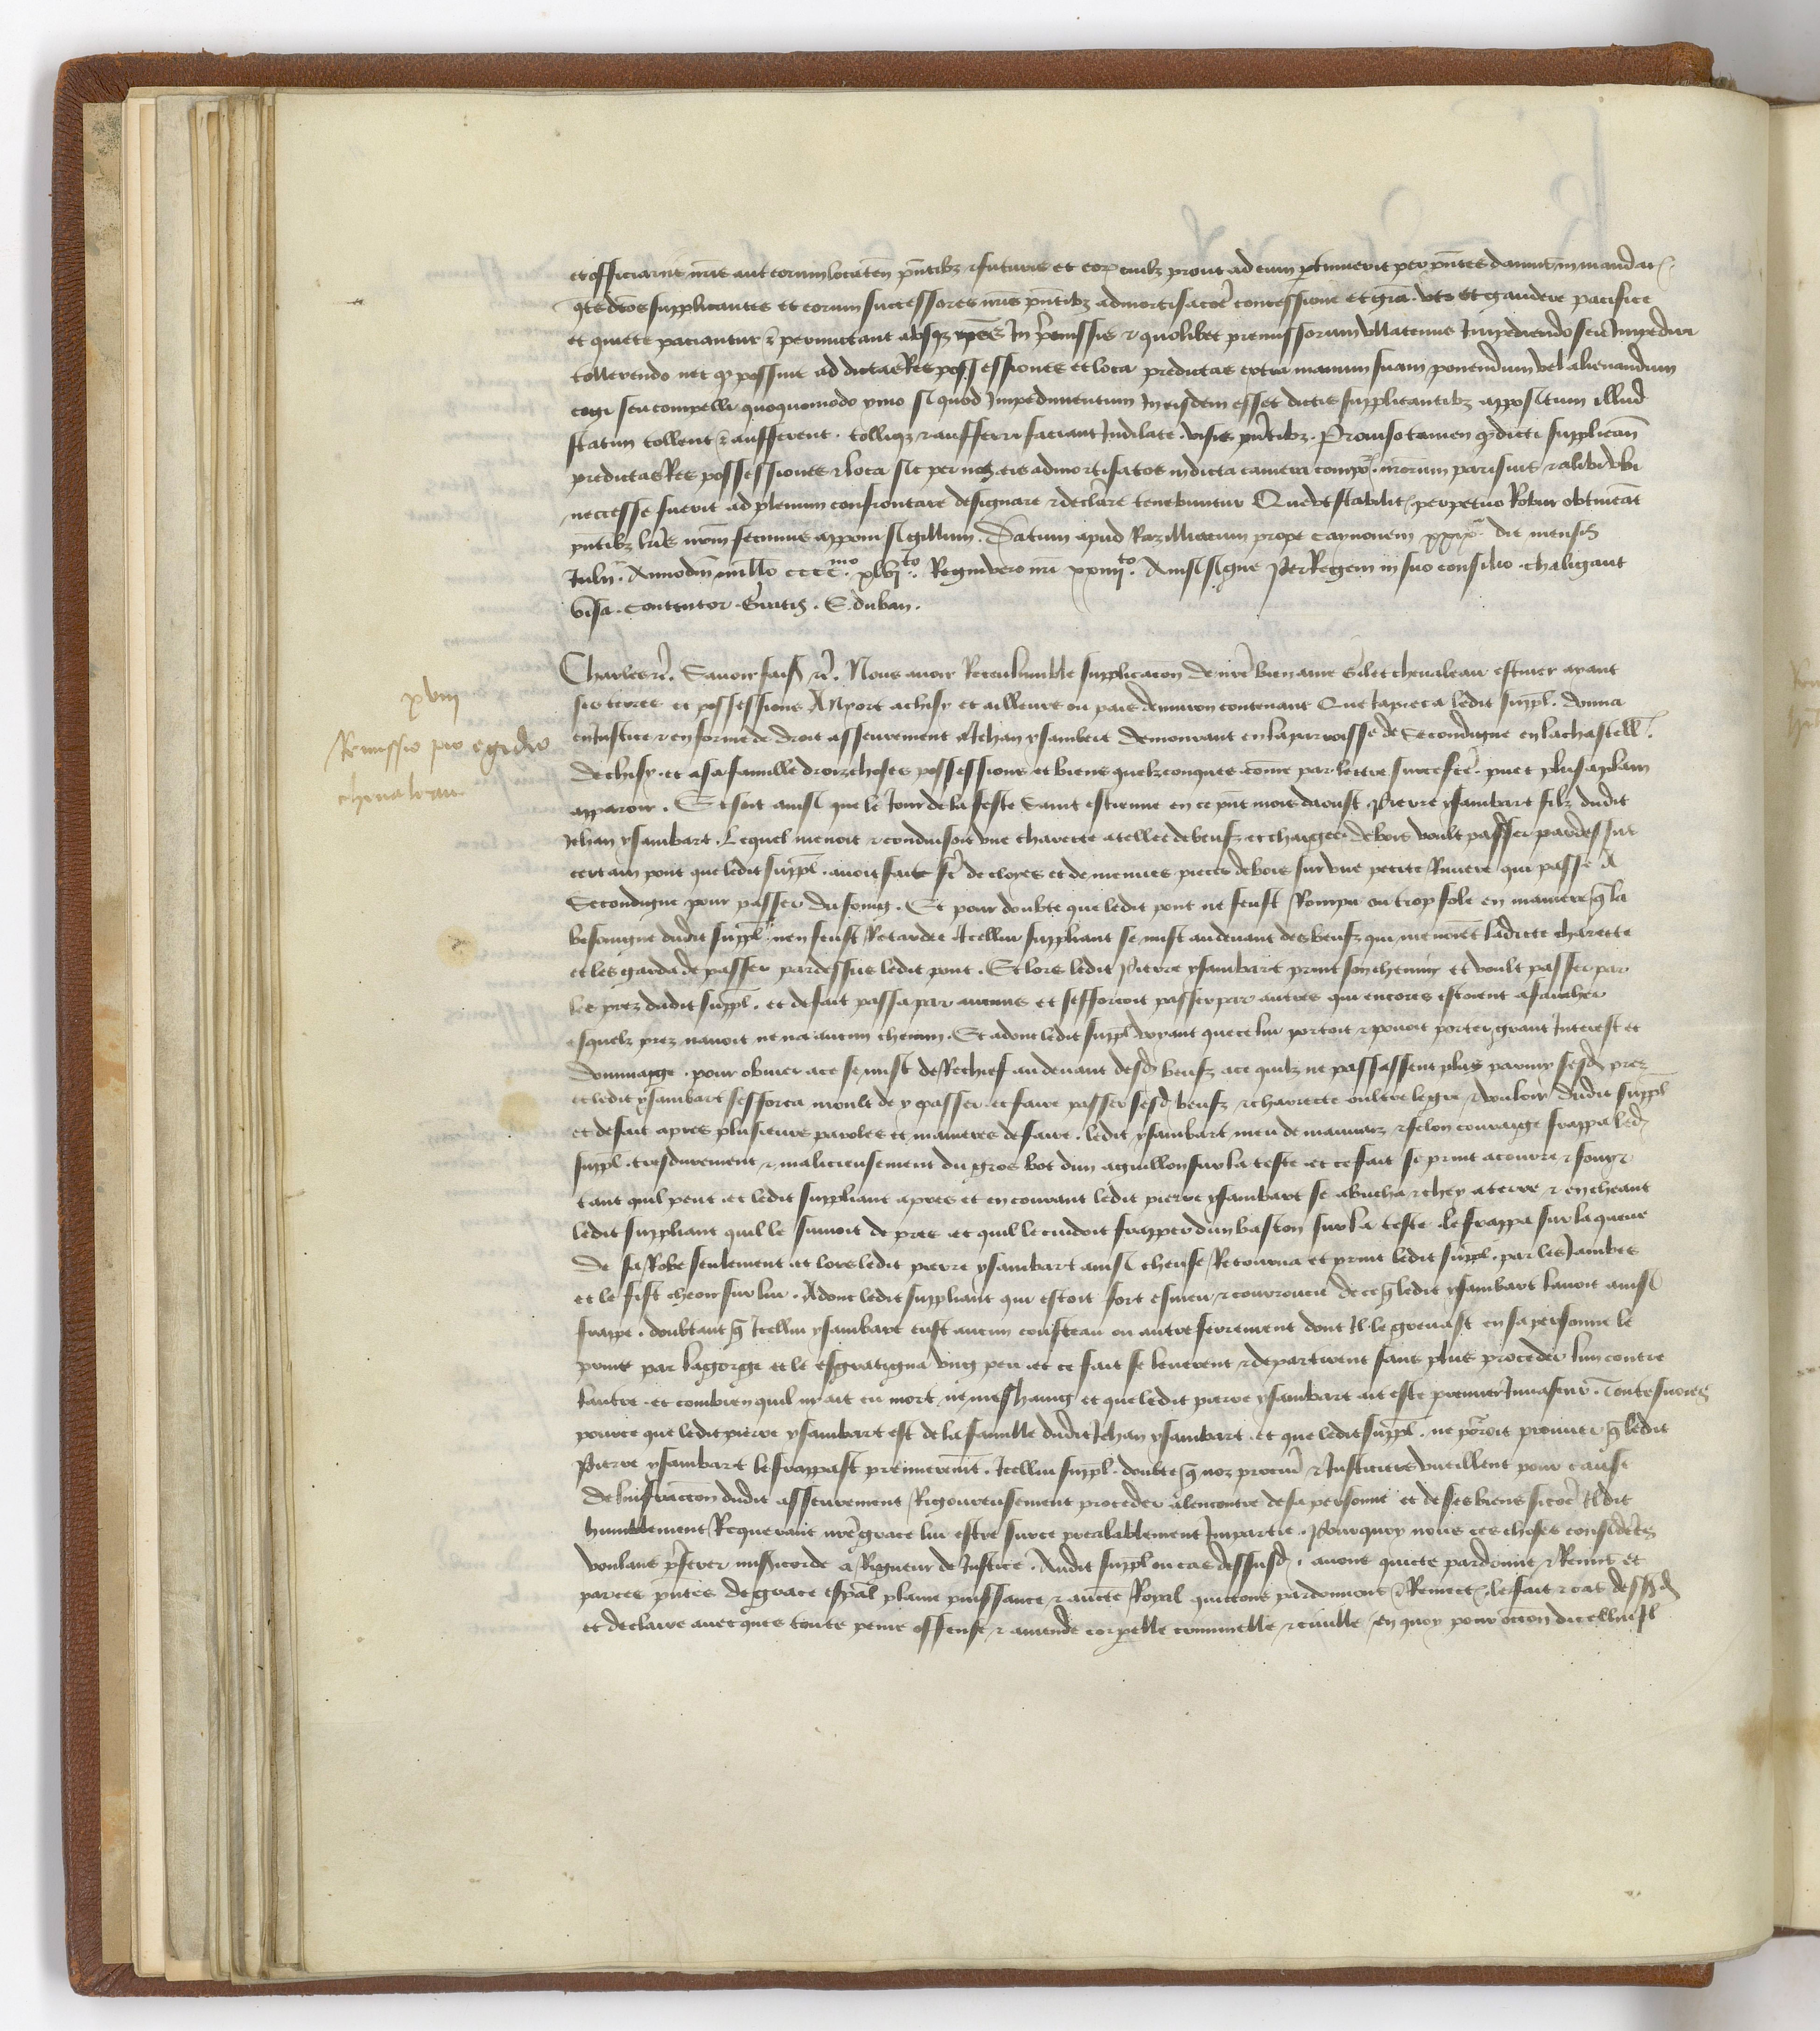 et officiariis nris aut eorum locaten pntibz & futuris et eorum cuilz prout ad eum ptinuerit per pntes damus in mandatis
qts dcos supplicantes et eorum successores nris pntibz admortisacoe concessione et gra uti et gaudere pacifice
et quiete paciantur & permittant absqz ipos in premissis & quolibet premissorum ullatenus Impediendo seu Impediri
tollerendo nec q possint ad dictas Res possessiones et loca predictas extra manum suam ponendum vel alienandum
cogi seu compelli quoquomodo ymo si quod Impedimentum In eisdem esset dictis supplicantibz appositum illud
statim tollent & aufferent . tolliqz & aufferri faciant Indilate . visis pntibz . Proviso tamen q dicti supplican
predictas Res possessiones & loca sic per nos eis admortisatos in dicta camera compo. nrorum parisius & alibi ubi
neccesse fuerit ad plenum confrontare designare & declare tenebuntur Que ut stabilit perpetuo Robur obtineat
pntibz lris nrm fecimus apponi sigillum . Datum apud Razilliacum prope Caynonem xxix die mensis
Julii . Anno dni millo cccc mo xlvi to . Regni vero nri xxiiii to . Ainsi signe Per Regem in suo consilio . Chaligaut
Visa . Contentor . Gratis . E. duban .
xviii
Remissio pro egidio
chevaleau
Charles &c . Savoir fais &c . Nous avoir Receu humble supplicacon de nre bien ame Gilet chevaleau escuier ayant
ses terres et possessions A Nyort a chisy et ailleurs ou pais denviron contenant Que ja pieca ledit suppl . donna
en Justice & en forme de droit asseurement a Jehan ysambert demourant en la parroisse de Secondigne en la chastell
de chisy . et a sa famille droiz choses possessions et biens quelzconques come par lettre sur ce fcte . puet plus a plain
apparoir . Et soit ainsi que le Jour de la feste Saint estienne en ce pnt mois daoust . Pierre ysambart filz dudit
Jehan ysambart . Lequel menoit & conduisoit une charette atellee de beufz et chargee de bois voult passer par dessus
certain pont que ledit suppl . avoit fait fe de cloyes et de menues pieces de bois sur une petite Riviere qui passe A
Secondigne pour passer du foing . Et pour doubte que ledit pont ne feust Rompu ou trop fole en maniere q la
besoingne dudit suppl nen feust Retardee Icellui suppliant se mist au devant des beufz qui menoiet ladicte charette
et les garda de passer par dessus ledit pont . Et lors ledit Pierre ysambart print son chemin et voult passer par
les prez dudit suppl . et de fait passa par aucuns et sefforcoit passer par autres qui encores estoient a faucher
esquelz prez navoit ne na aucun chemin . Et adont ledit suppl voyant que ce lui portoit & povoit porter grant Interest et
dommaige . pour obvier a ce se mist de Rechief au devant desd beufz a ce quilz ne passassent plus parmy sesd prez
et ledit ysambart sefforca moult de y passer et faire passer sesd beufz & charrette oultre le gre & vouloir dudit suppl
et de fait apres plusieurs paroles et manieres de faire . ledit ysambart meu de mauvaiz & felon couraige frappa led
suppl . tresdurement & malicieusement du gros bot dun aguillon sur la teste et ce fait se print a courre & fouyr
tant quil peut et ledit suppliant apres et en courant ledit pierre ysambart se abucha & chey a terre & en cheant
ledit suppliant quil le suivoit de pres et quil le cuidoit frapper dun baston sur la teste . le frappa sur la queue
de sa Robe seulement et lors ledit pierre ysambart ainsi cheu se Retourna et print ledit suppl . par les Jambes
et le fist cheoir sur lui . Adont ledit suppliant qui estoit fort esmeu & courroucie de ce q ledit ysambart lavoit ainsi
frappe . doubtant q Icellui ysambart eust aucun cousteau ou autre ferrement dont Il le grevast en sa personne le
print par la gorge et le esgratigna ung peu et ce fait se leverent & departirent sans plus proceder lun contre
lautre . et combien quil ny ait eu mort ne meshaing et que ledit pierre ysambart ait este premier Invaseur . Toutesvoies
pource que ledit pierre ysambart est de la famille dudit Jehan ysambart . et que ledit suppl . ne pourroit prouver q ledit
Pierre ysambart le frappast premierement . Icellui suppl . doubte q noz procur & Justiciers vueillent pour cause
de linfraccon dudit asseurement Rigoureusement proceder a lencontre de sa personne et de ses biens si coe Il dit
humblement Requerant nre grace lui estre sur ce prealablement Impartie . Pourquoy nous ces choses considerees
voulans preferer misericorde a Rigueur de Justice . Audit suppl ou cas dessusd . avons quicte pardonne & Remis et
par ces pntes de grace espal plaine puissance & aucte Royal quictons pardonnons & Remect . le fait & cas dessusd
et declaire avecques toute peine offense & amende corpelle criminelle & civille en quoy pour occon dicellui Il